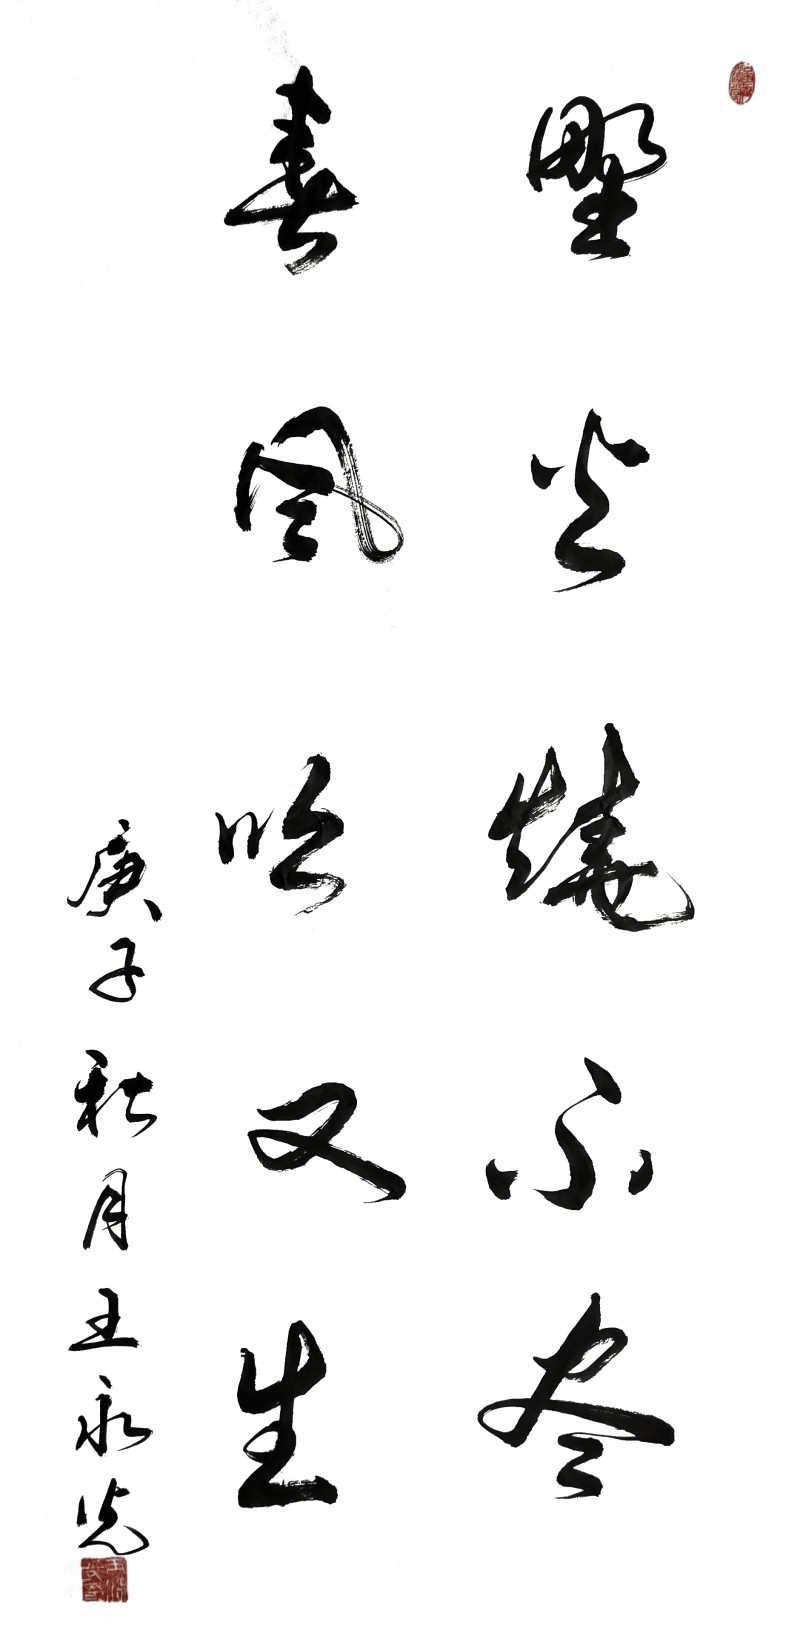 野火燒不尽
春风吹又生
庚子秋月王永光